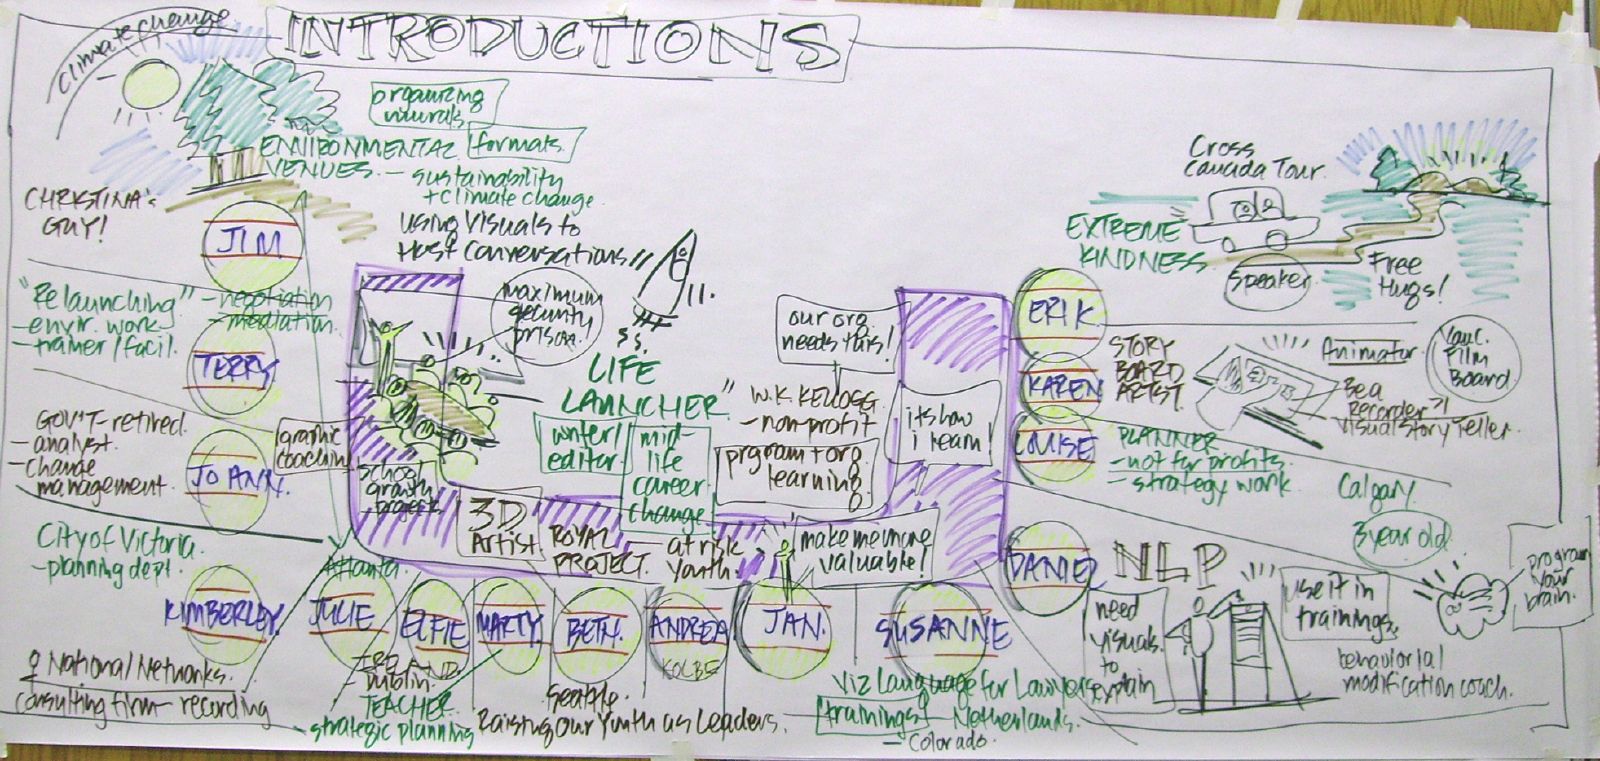 INTRODUCTIONS
Climate change
organizing
murals
formats
ENVIRONMENTAL
VENUES
- sustainability
+ climate change
using Visuals to
Host Conversations
CHRISTINA's
GUY!
JIM
"Relaunching"
- envir. work
- trainer/facil.
- negotiation
- mediation.
TERRY
GOV'T - retired.
- analyst.
- change
management.
JO ANN.
graphic
coaching
City of Victoria.
- planning dept.
KIMBERLEY.
♀ National Networks.
consulting firm - recording
maximum
security
prison
school
growth
projects
LIFE
LAUNCHER"
writer/
editor.
mid-
life
career
change
3D
Artist
ROYAL
PROJECT.
at risk
youth
our org.
needs this!
W.K. KELLOGG
- non-profit
prgram + org
learning
its how
i learn!
make me more
valuable!
Atlanta.
JULIE
ELFIE
IRELAND.
Dublin.
TEACHER.
strategic planning
MARTY
BETH.
Seattle.
Raising Our Youth as Leaders.
ANDREA
KOLBE
JAN.
SUSANNE
Viz Language for Lawyers
trainings
- Netherlands.
- Colorado.
Cross
Canada Tour.
EXTREME
KINDNESS.
Speaker
Free
Hugs!
ERIK.
KAREN
STORY
BOARD
ARTIST.
Animator.
Film
Board.
Be a
Recorder?!
Visual Story Teller.
LOUISE
PLANNER
- not for profits.
- strategy work.
Calgary
3 year old.
DANIEL
NLP
need
visuals
to
explain
use it in
trainings.
program
your
brain.
behaviorial
modification coach.